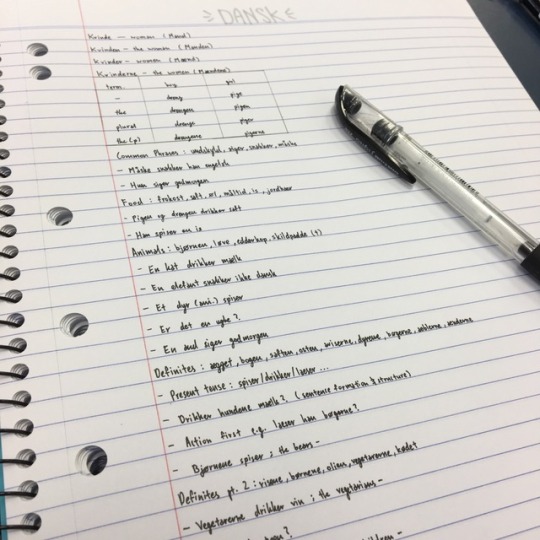 DANSK
Kvinde — woman (Mand)
Kvinden — the woman (Manden)
Kvinder — women (Mænd)
Kvinderne — the women (Mændene)
term boy girl
— dreng pige
the drengen pigen
plural drenge piger
the (p) drengene pigerne
Common Phrases : undskyld, siger, snakker, måske
- Måske snakker han engelsk
- Hun siger godmorgen
Food : frokost, salt, ost, måltid, is, jordbær
- Pigen og drengen drikker saft
- Han spiser en is
Animals : bjørnen, løve, edderkop, skildpadde (t)
- En kat drikker mælk
- En elefant snakker ikke dansk
- Et dyr (ani.) spiser
- Er det en ?
- En siger godmorgen
Definites : ægget, bogen, saften, osten, aviserne, dyrene, børgerne, æblerne, enderne
- Present tense : spiser/drikker/læser ...
- Drikker hundene mælk? (sentence formation & structure)
- Action first e.g. læser han bøgerne?
- Bjørnene spiser ; the bears -
Definites pt. 2 : risene, børnene, olien, vegetarerne, kødet
- Vegetarerne drikker vin ; the vegetarians -